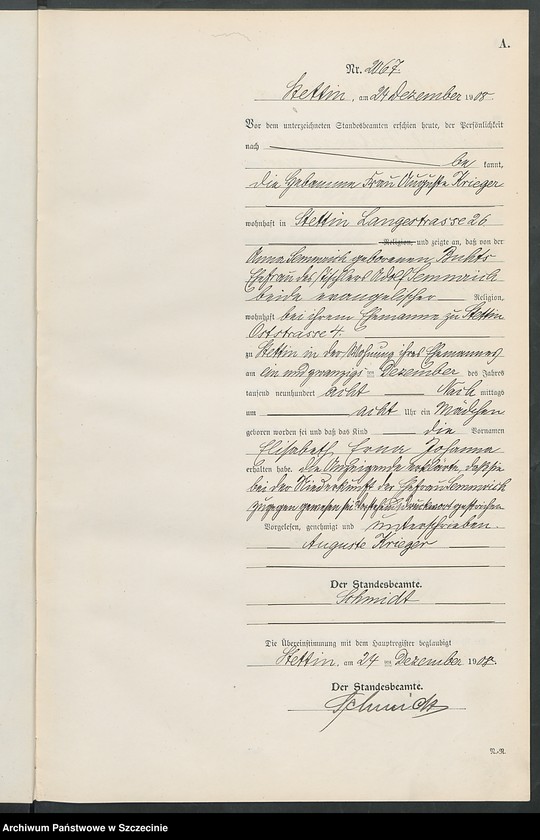 A.
Nr. 2067.
Stettin, am 24 Dezember 1908.
Vor dem unterzeichneten Standesbeamten erschien heute, der Persönlichkeit
nach be kannt,
die Hebamme Frau Auguste Krieger
wohnhaft in Stettin Langestrasse 26
Religion, und zeigte an, daß von der
Anna Semmrich geborenen
Ehefrau des Tischlers Adolf Semmrich
beide evangelischer Religion,
wohnhaft bei ihrem Ehemanne zu Stettin
Oststrasse 4.
zu Stettin in der Wohnung ihres Ehemannes
am ein und zwanzigsten Dezember des Jahres
tausend neunhundert acht Nach mittags
um acht Uhr ein Mädchen
geboren worden sei und daß das Kind die Vornamen
Elisabeth Erna Johanna
erhalten habe. Die Anzeigende erklärte, daß sie
bei der Niederkunft der Ehefrau Semmrich
zugegen gewesen sei. Druckwort gestrichen.
Vorgelesen, genehmigt und unterschrieben.
Auguste Krieger
Der Standesbeamte.
Schmidt
Die Übereinstimmung mit dem Hauptregister beglaubigt
Stettin, am 24 ten Dezember 1908.
Der Standesbeamte.
Schmidt
N.-R.
Archiwum Państwowe w Szczecinie